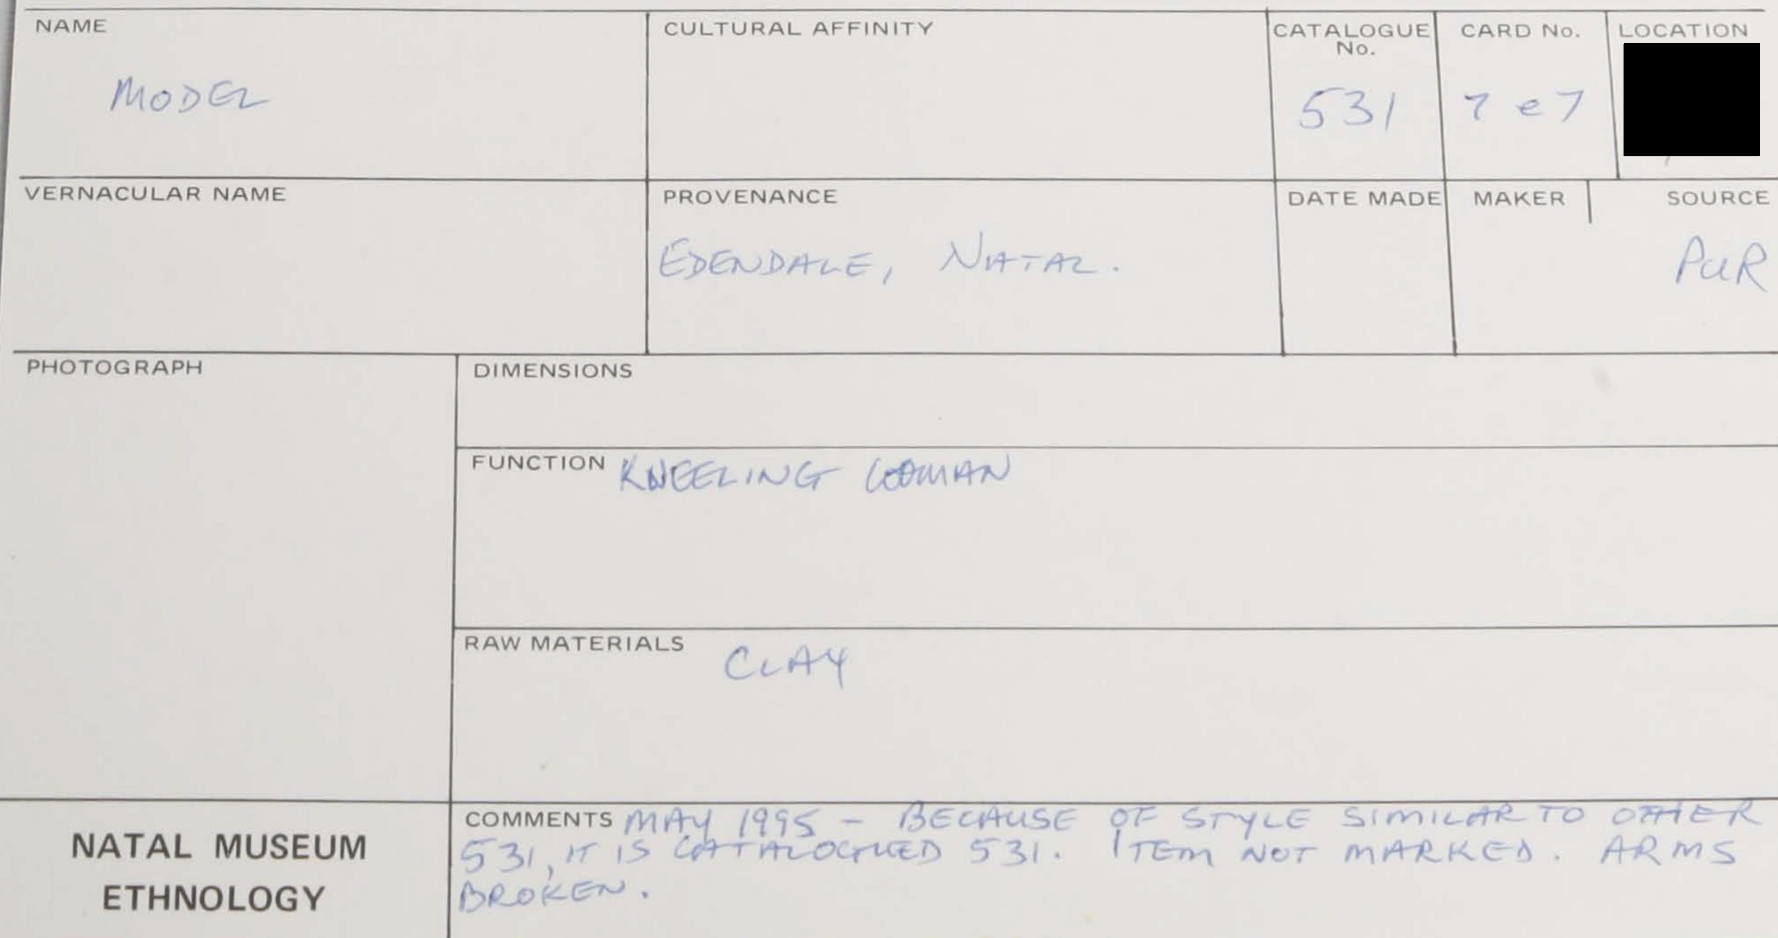 NAME
CULTURAL AFFINITY
CATALOGUE No.
CARD No.
LOCATION
MODEL
531
7 e 7
VERNACULAR NAME
PROVENANCE
DATE MADE
MAKER
SOURCE
EDENDALE, NATAL.
PUR
PHOTOGRAPH
DIMENSIONS
FUNCTION KNEELING WOMAN
RAW MATERIALS CLAY
NATAL MUSEUM
ETHNOLOGY
COMMENTS MAY 1995 - BECAUSE OF STYLE SIMILAR TO OTHER
531, IT IS CATALOGUED 531. ITEM NOT MARKED. ARMS
BROKEN.